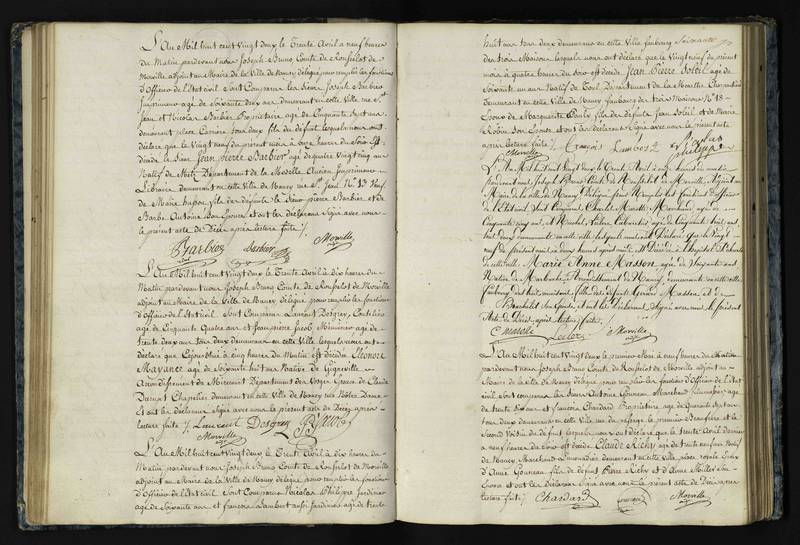 L'An Mil huit cent Vingt deux le Trente Avril a neuf heures
du Matin pardevant nous Joseph Bruno Comte de Rousselot de
Morville adjoint au Maire de la Ville de Nancy délégué pour remplir les fonctions
d'Officier de l'Etat civil Sont Comparus les Sieurs Joseph Barbier
Imprimeur agé de Soixante deux ans demeurant en cette Ville rue St.
Jean et Nicolas Barbier Propriétaire agé de Cinquante Sept ans
demeurant place Carrière tous deux fils du défunt lesquels nous ont
déclaré que le Vingt neuf du présent mois à onze heures du Soir Est
décédé le Sieur Jean pierre Barbier agé de quatre vingt cinq ans
Natif de Metz Département de la Moselle Ancien Imprimeur
Libraire demeurant en cette Ville de Nancy rue St. Jean No. 13 Veuf
de Marie fils de défunts le Sieur pierre Barbier et de
Barbe Antoine Son Epouse et ont les déclarans Signé avec nous
le présent acte de Décès après lecture faite /.
Barbier Barbier Morville
L'An Mil huit cent Vingt deux le Trente Avril à dix heures du
Matin pardevant nous Joseph Bruno Comte de Rousselot de Morville
adjoint au Maire de la Ville de Nancy délégué pour remplir les fonctions
d'Officier de l'Etat civil Sont Comparus Laurent Desgrey,
agé de Cinquante Quatre ans et Jean pierre Jacob, Menuisier agé de
trente deux ans tous deux demeurans en cette Ville lesquels nous ont
déclaré que Cejourd'hui à cinq heures du Matin Est décédée Eléonore
Mayance agée de Soixante huit ans Native de Gigneville
Arrondissement de Mirecourt Département des Vosges Epouse de Claude
Chapelier demeurant en cette Ville de Nancy rue Notre Dame
Et ont les déclarans Signé avec nous le présent acte de Décès après
lecture faite /. Laurent Desgrey
Morville
L'An Mil huit cent Vingt deux le Trente Avril à dix heures du
Matin, pardevant nous Joseph Bruno Comte de Rousselot de Morville
adjoint au Maire de la Ville de Nancy délégué pour remplir les fonctions
d'Officier de l'Etat civil Sont Comparus Nicolas Philippe Jardinier
agé de Soixante ans et françois Lambert aussi Jardinier agé de trente
huit ans tous deux demeurans en cette Ville faubourg
des trois Maisons lesquels nous ont déclaré que le Vingt neuf du présent
mois à quatre heures du Soir est décédé Jean Pierre Soleil agé de
Soixante un ans Natif de Toul Département de la Meurthe Charpentier
demeurant en cette Ville de Nancy faubourg des trois Maisons No. 18
Epoux de Marguerite fils de défunts Jean Soleil et de Marie
Robin Son Epouse et ont les déclarans Signé avec nous le présent acte
après lecture faite /. françois Lambert Nicolas
Morville philippe
L'An Mil huit cent Vingt deux le trente Avril à onze heures du matin
pardevant nous Joseph Bruno Comte de Rousselot de Morville Adjoint au
Maire de la ville de Nancy, Délégué pour remplir les fonctions d'officier
de l'Etat civil, Sont Comparus Charles agé de
Cinquante cinq ans, et agé de Cinquante huit ans,
tous deux demeurans en cette ville, lesquels nous ont Déclaré que le Vingt
neuf du présent mois à deux heures après midi, est Décédée à l'hôpital St. Charles
de cette ville Marie Anne Masson agée de Cinquante ans
Native de arrondissement de Nancy, demeurante en cette ville
faubourg des trois maisons, fille des défunts Gérard Masson, et de
Son Epouse et ont les Déclarans Signé avec nous le présent
Acte de Décès après lecture faite /.
C Leclerc Morville
L'An Mil huit cent Vingt deux le premier Mai à neuf heures du Matin
pardevant nous Joseph Bruno Comte de Rousselot de Morville, adjoint au
Maire de la Ville de Nancy délégué pour remplir les fonctions d'Officier de l'Etat
civil, sont comparus les Sieurs Antoine Gouveneau agé
de trente Six ans et françois Chardard Propriétaire agé de Quarante Sept ans
tous deux demeurans en cette Ville le premier Beaufrère et le
Second Voisin du défunt lesquels nous ont déclaré que le trente Avril dernier
à neuf heures du Soir est décédé Claude Richy agé de trente ans Natif
de Nancy Marchand Limonadier demeurant en cette Ville place royale Epoux
d'Anne Gouveneau fils de défunt Pierre Richy et d'Anne Millot Son
Epouse et ont les déclarans Signé avec nous le présent acte de Décès après
lecture faite /. Chardard Morville